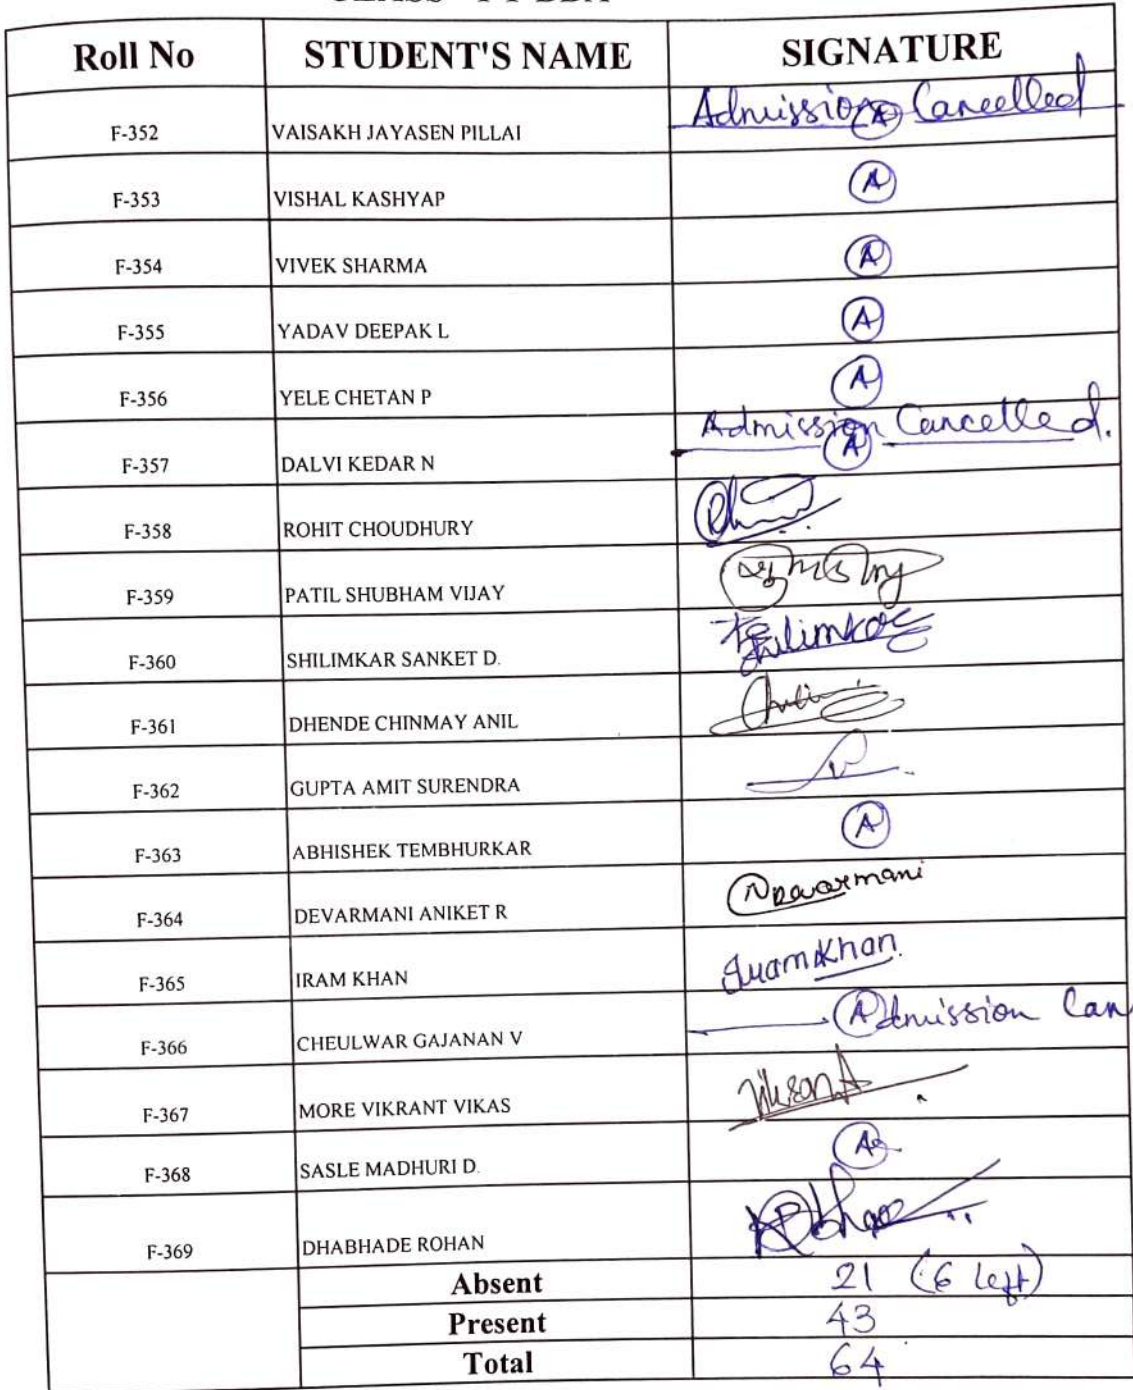 Roll No STUDENT'S NAME SIGNATURE
F-352 VAISAKH JAYASEN PILLAI Admission Cancelled A
F-353 VISHAL KASHYAP A
F-354 VIVEK SHARMA A
F-355 YADAV DEEPAK L A
F-356 YELE CHETAN P A
F-357 DALVI KEDAR N Admission Cancelled. A
F-358 ROHIT CHOUDHURY
F-359 PATIL SHUBHAM VIJAY
F-360 SHILIMKAR SANKET D. Shilimkar
F-361 DHENDE CHINMAY ANIL
F-362 GUPTA AMIT SURENDRA
F-363 ABHISHEK TEMBHURKAR A
F-364 DEVARMANI ANIKET R
F-365 IRAM KHAN IramKhan.
F-366 CHEULWAR GAJANAN V Admission Can
F-367 MORE VIKRANT VIKAS
F-368 SASLE MADHURI D. A
F-369 DHABHADE ROHAN
Absent 21 (6 left)
Present 43
Total 64